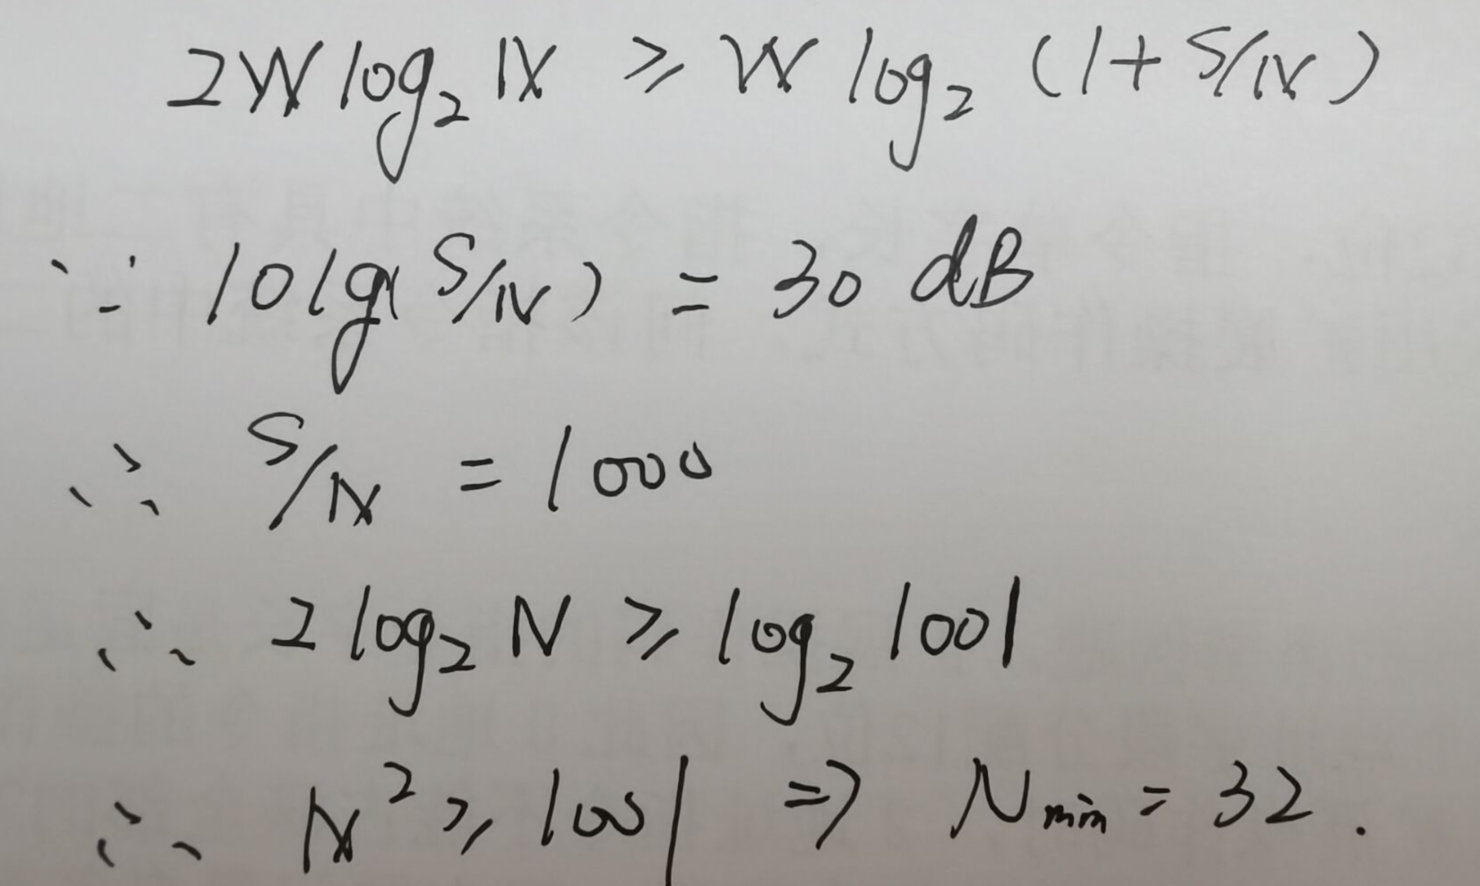 2W log₂ N ≥ W log₂ (1 + S/N)
∵ 10lg(S/N) = 30 dB
∴ S/N = 1000
∴ 2 log₂ N ≥ log₂ 1001
∴ N² ≥ 1001 ⇒ Nmin = 32.